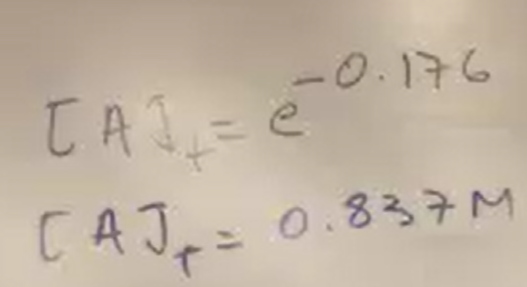 [A]ₜ = e^-0.176
[A]ₜ = 0.837 M